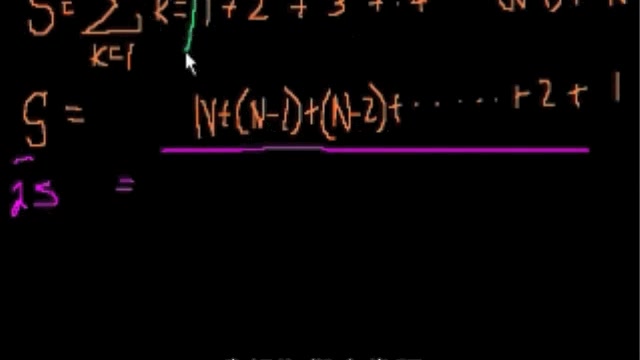 S = ∑ k=1 k = 1 + 2 + 3 + ... + (N-1) + N
S = N+(N-1)+(N-2)+ ...... +2+ 1
2S =